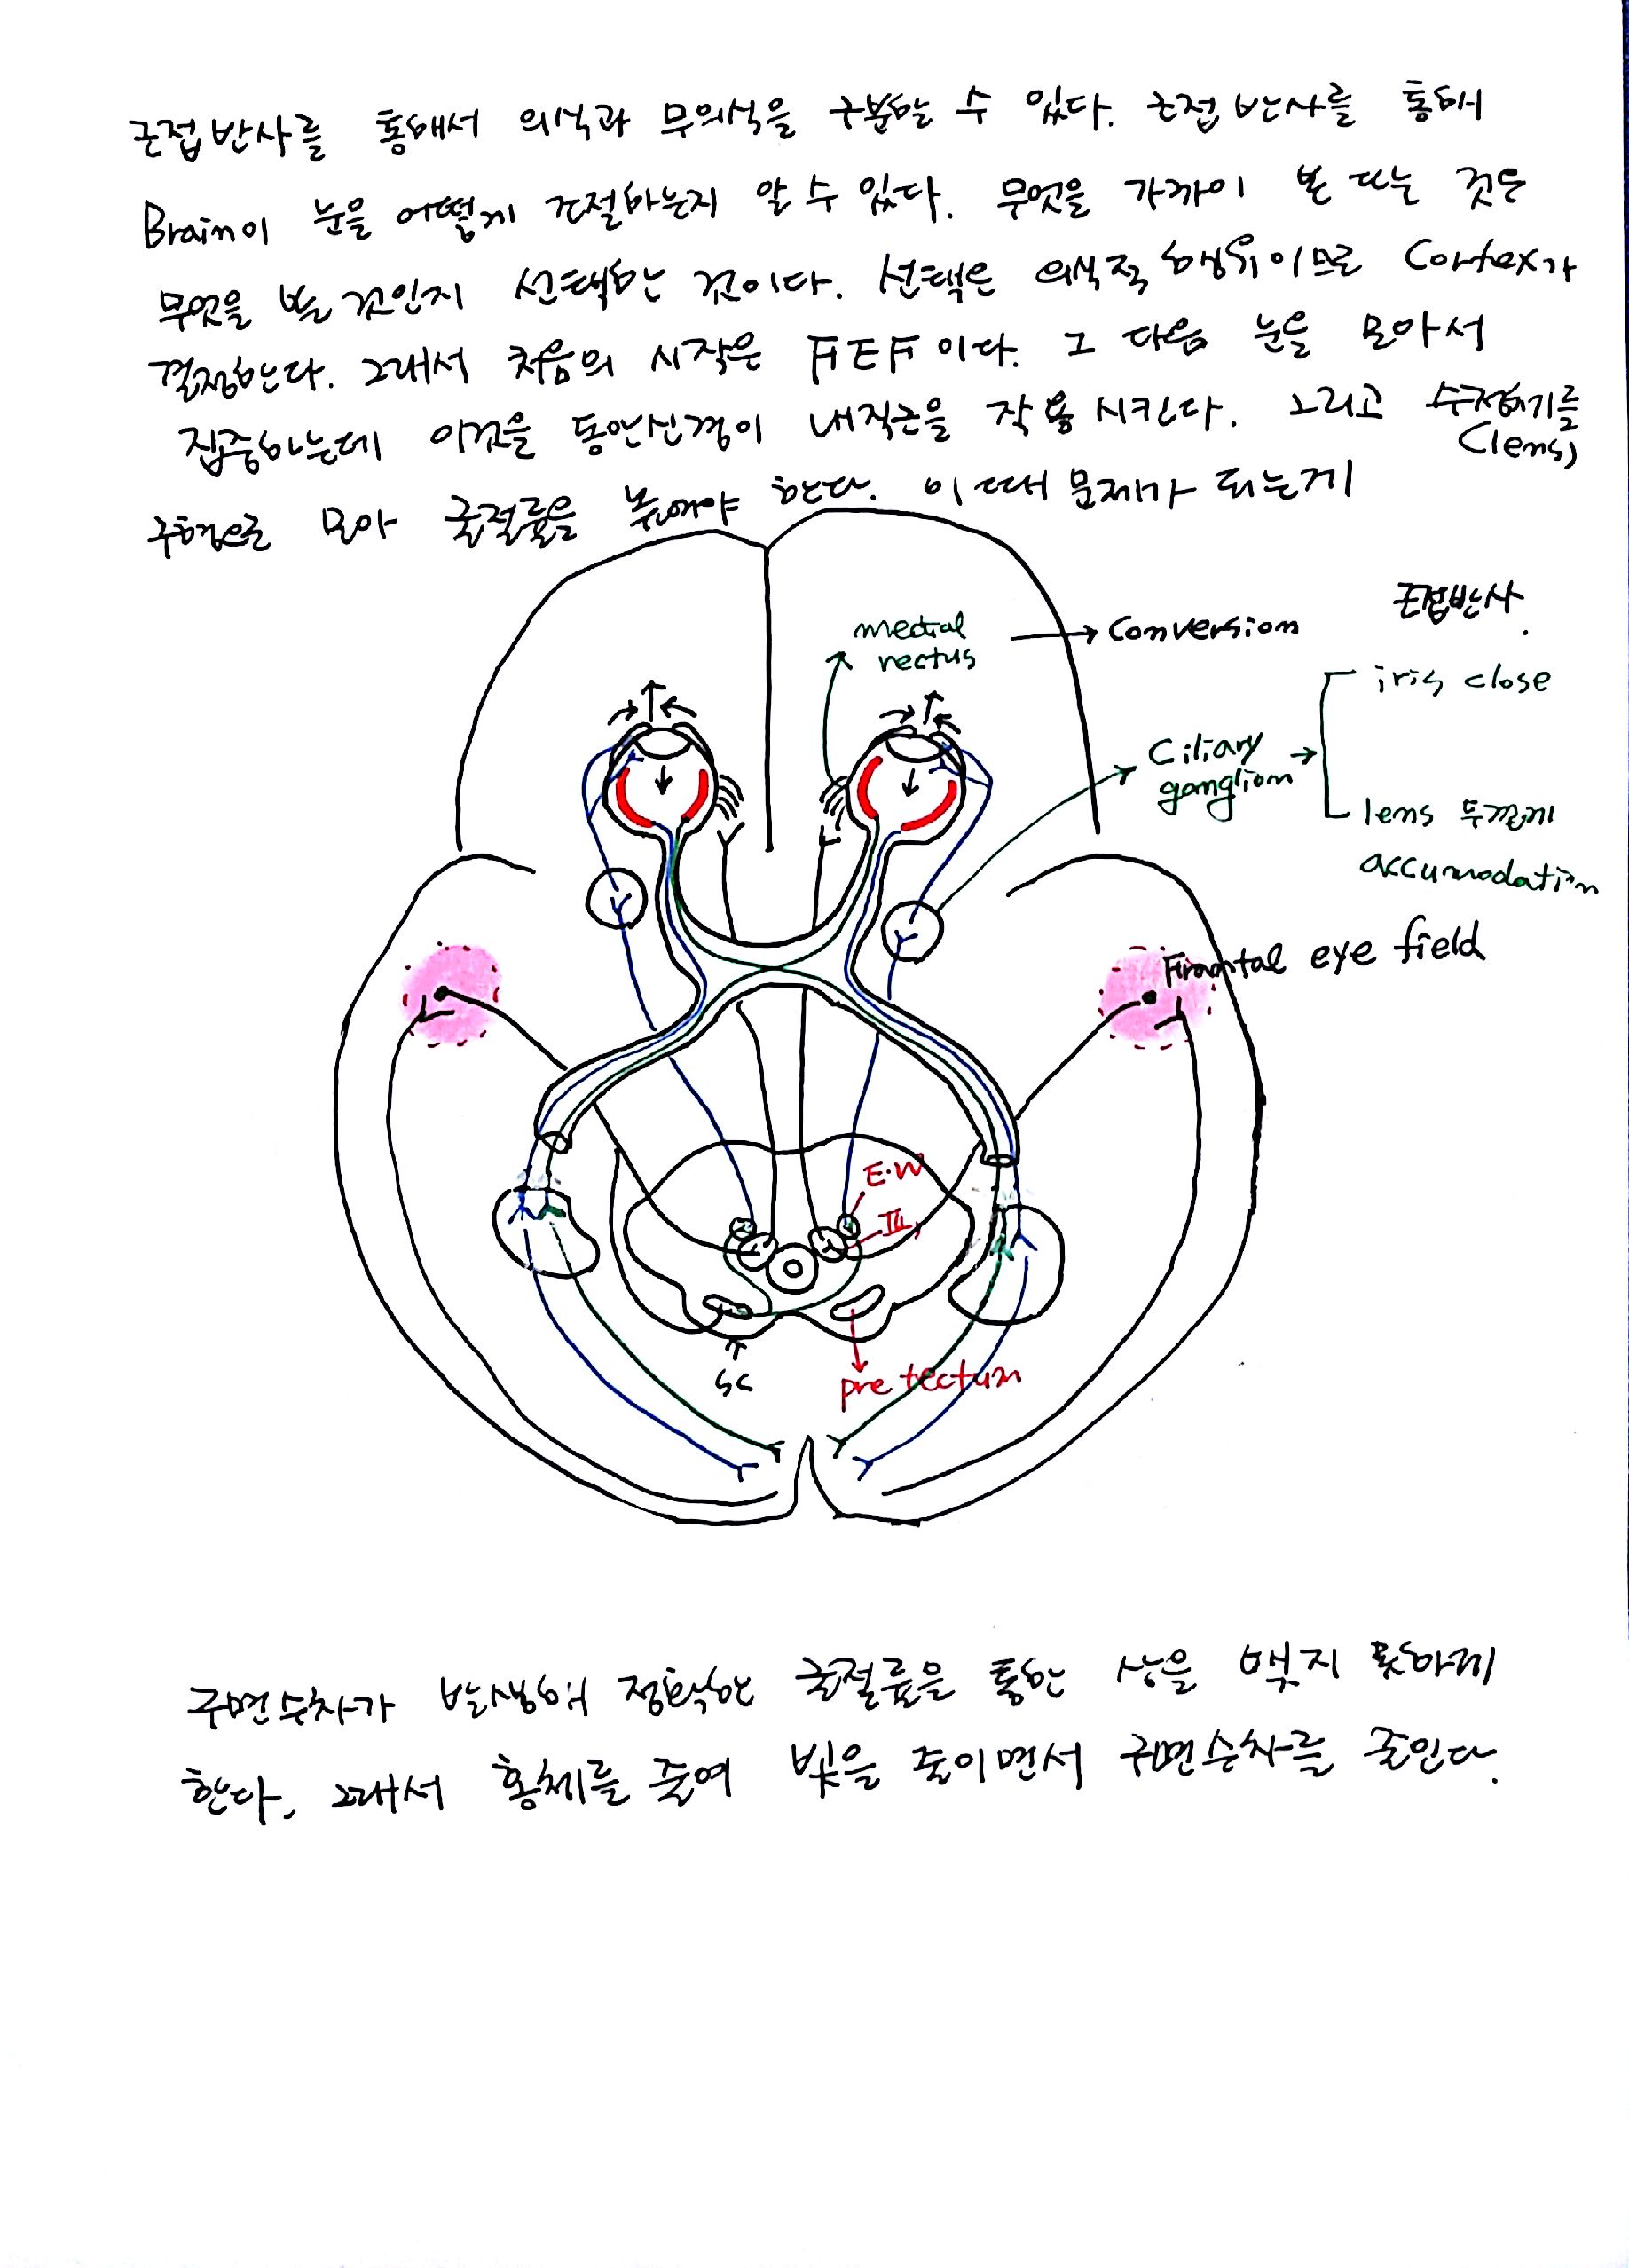 근접반사를 통해서 의식과 무의식을 구분할 수 있다. 근접반사를 통해
Brain이 눈을 어떻게 조절하는지 알 수 있다. 무엇을 가까이 본다는 것은
무엇을 볼 것인지 선택하는 것이다. 선택은 의식적 행위이므로 Cortex가
결정한다. 그래서 처음의 시작은 FEF이다. 그 다음 눈을 모아서
집중하는데 이것을 동안신경이 내직근을 작용시킨다. 그리고 수정체를
(lens)
구형으로 모아 굴절률을 높여야 한다. 이때 문제가 되는게
근접반사.
medial
rectus
Conversion
iris close
Ciliary
ganglion
lens 두껍게
accumodation
Frontal eye field
E.W
III
SC
pretectum
구면수차가 발생해 정확한 굴절률을 통한 상을 맺지 못하게
한다. 그래서 홍채를 줄여 빛을 줄이면서 구면수차를 줄인다.